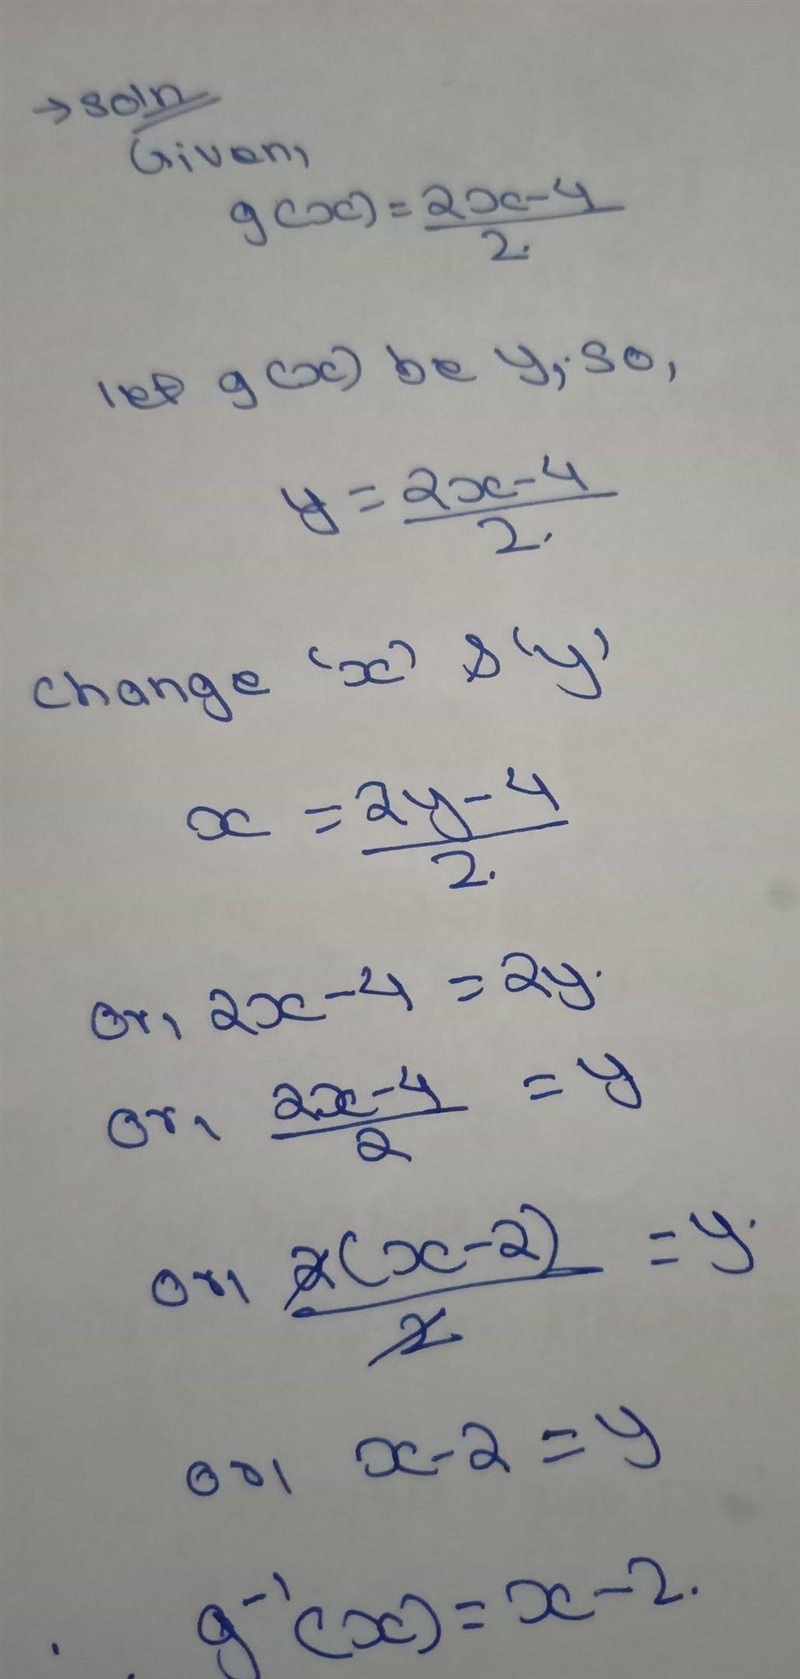 → soln
Given,
g(x) = 2x-4/2.
let g(x) be y, so,
y = 2x-4/2.
change 'x' & 'y'
x = 2y-4/2.
or, 2x-4 = 2y.
or, 2x-4/2 = y
or, 2(x-2)/2 = y.
or, x-2 = y
g⁻¹(x) = x-2.